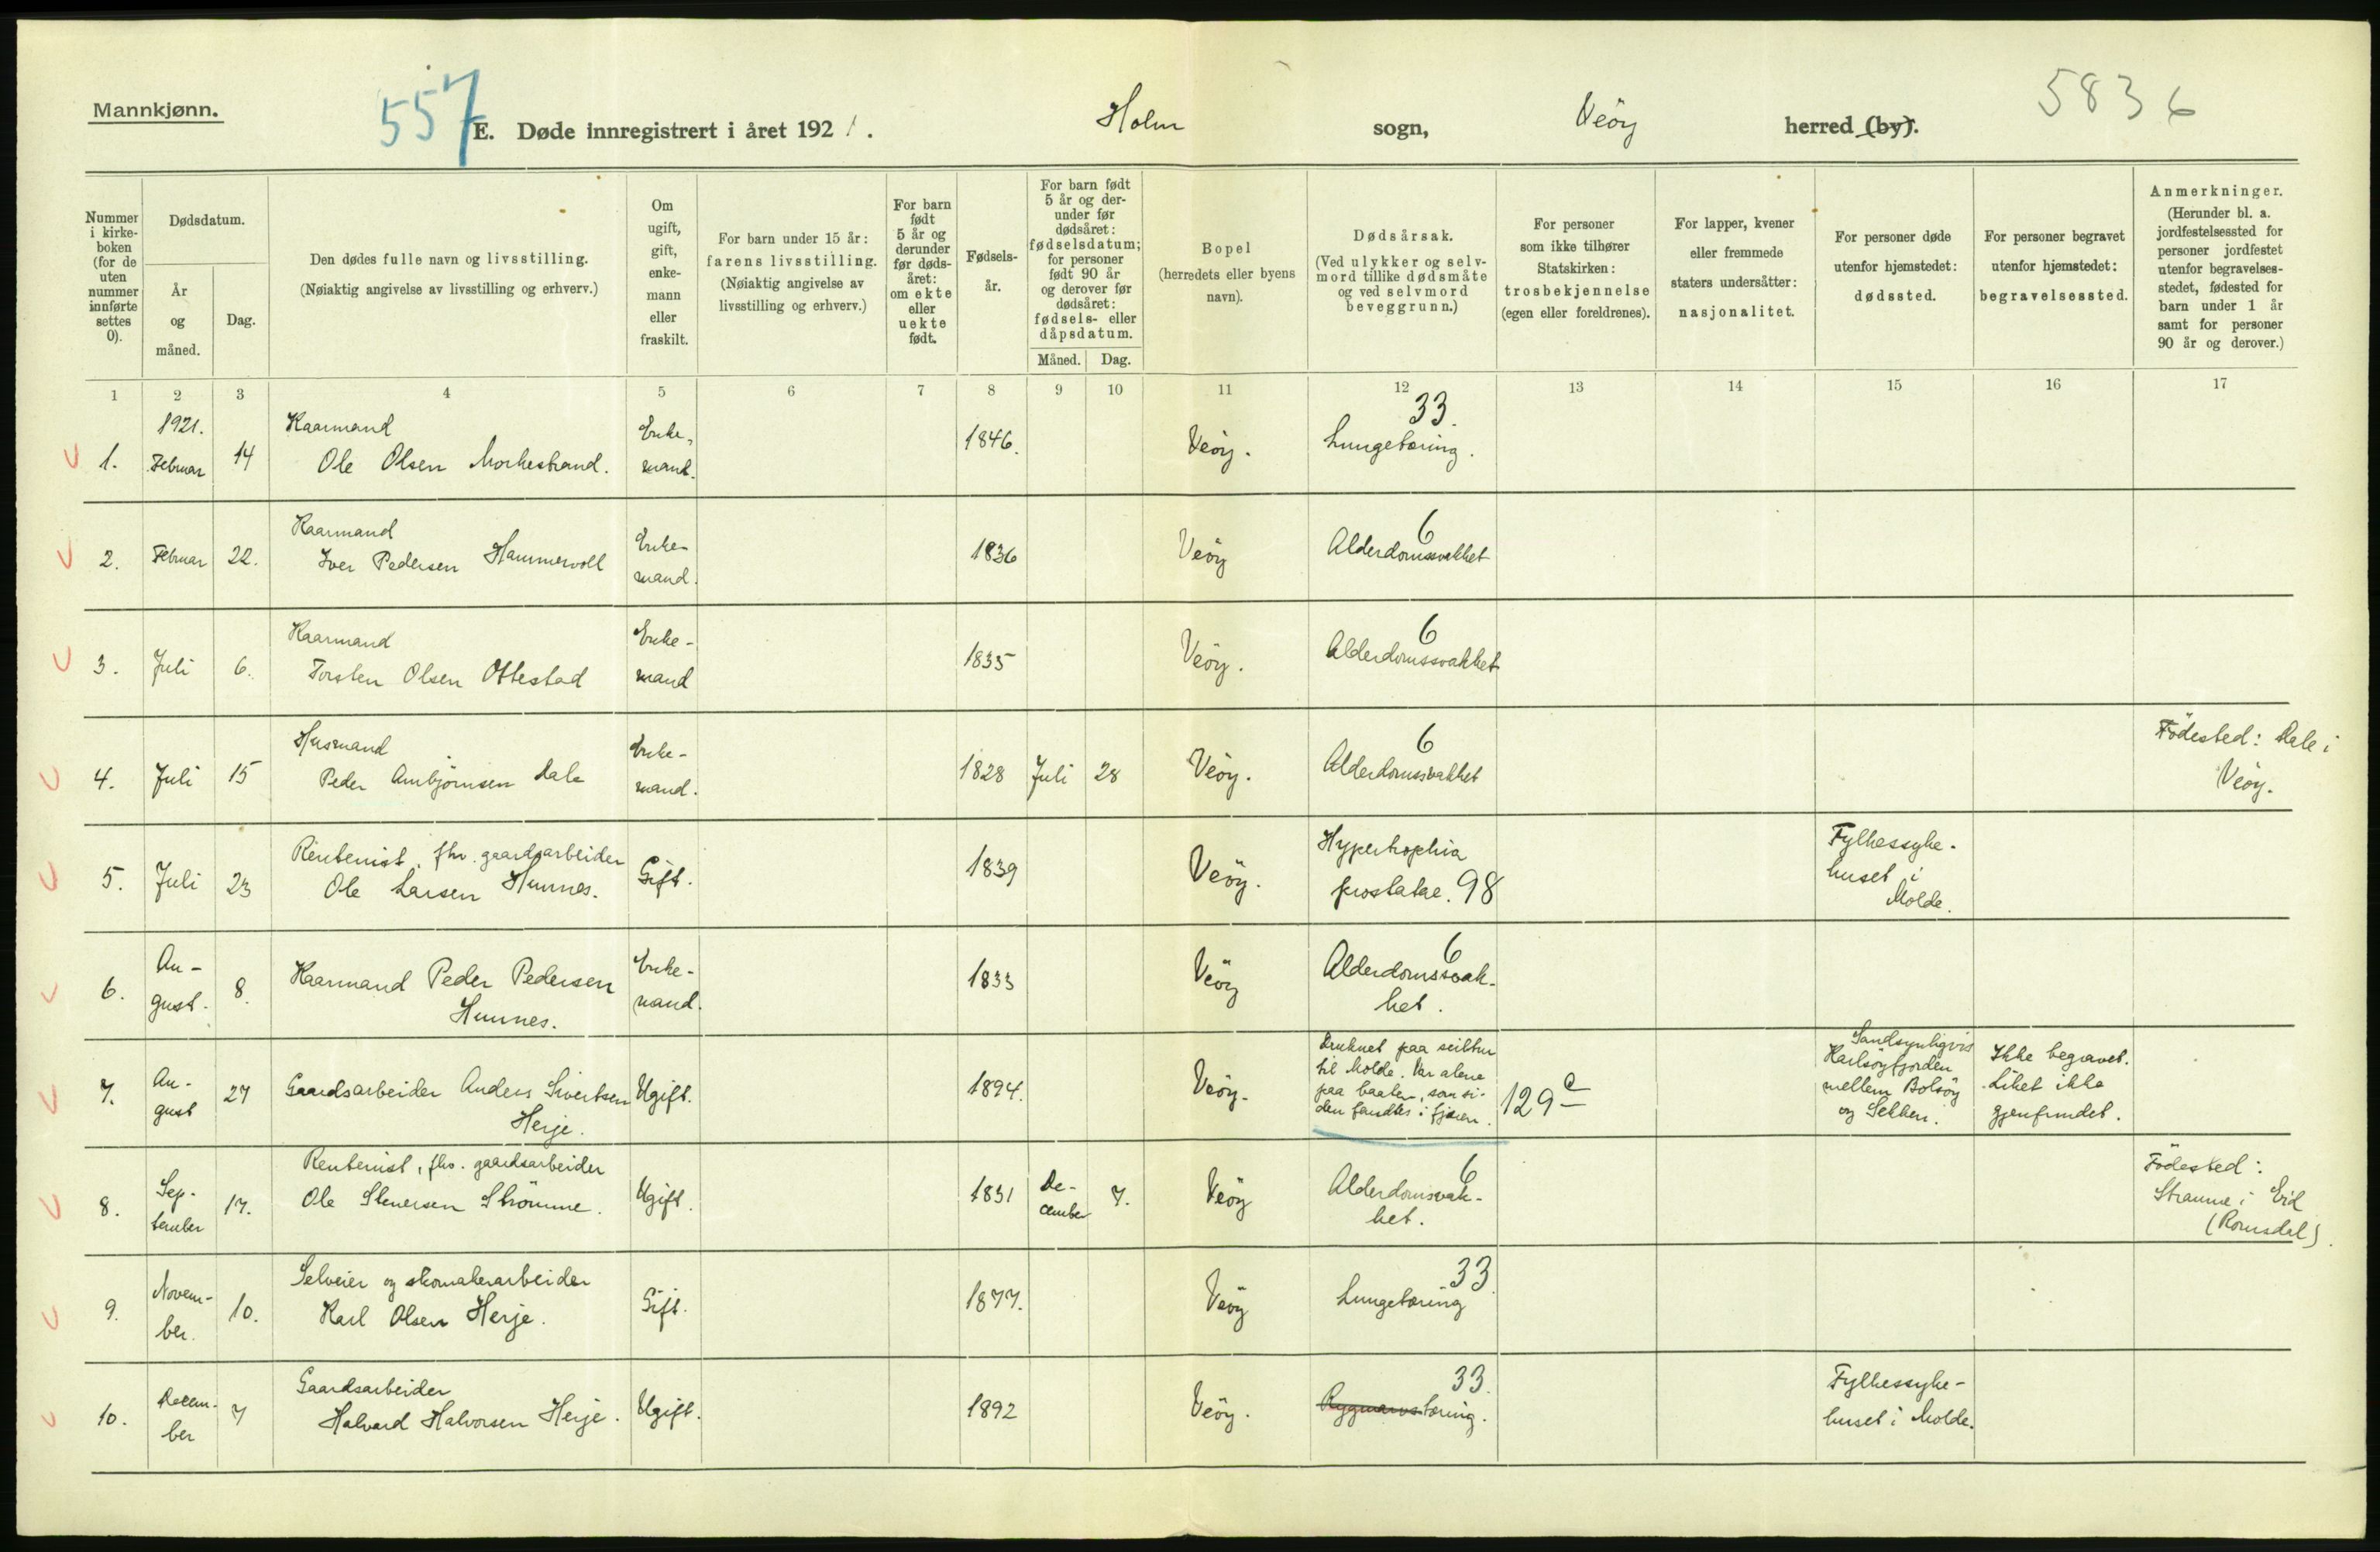 Mannkjønn.
557
E. Døde innregistrert i året 1921.
Holm sogn,
Veöy herred (by).
5836
Nummer i kirkeboken (for de uten nummer innførte settes 0).
Dødsdatum.
År og måned.
Dag.
Den dødes fulle navn og livsstilling.
(Nøiaktig angivelse av livsstilling og erhverv.)
Om ugift, gift, enkemann eller fraskilt.
For barn under 15 år: farens livsstilling.
(Nøiaktig angivelse av livsstilling og erhverv.)
For barn født 5 år og derunder før dødsåret: om ekte eller uekte født.
Fødselsår.
For barn født 5 år og derunder før dødsåret: fødselsdatum; for personer født 90 år og derover før dødsåret: fødsels- eller dåpsdatum.
Måned. Dag.
Bopel
(herredets eller byens navn).
Dødsårsak.
(Ved ulykker og selvmord tillike dødsmåte og ved selvmord beveggrunn.)
For personer som ikke tilhører Statskirken: trosbekjennelse (egen eller foreldrenes).
For lapper, kvener eller fremmede staters undersåtter: nasjonalitet.
For personer døde utenfor hjemstedet: dødssted.
For personer begravet utenfor hjemstedet: begravelsessted.
Anmerkninger.
(Herunder bl. a. jordfestelsessted for personer jordfestet utenfor begravelsesstedet, fødested for barn under 1 år samt for personer 90 år og derover.)
1 2 3 4 5 6 7 8 9 10 11 12 13 14 15 16 17
1. 1921. Februar 14 Kaarmand Ole Olsen Morkestrand. Enkemand. 1846. Veöy. 33. Lungetæring.
2. Februar 22. Kaarmand Iver Pedersen Hammervoll Enkemand. 1836 Veöy 6 Alderdomssvakhet
3. Juli 6. Kaarmand Torsten Olsen Ottestad Enkemand 1835 Veöy. 6 Alderdomssvakhet
4. Juli 15 Husmand Peder Arnbjörnsen Dale Enkemand. 1828 Juli 28 Veöy. 6 Alderdomssvakhet Födested: Dale i Veöy.
5. Juli 23 Rentenist, fhv. gaardsarbeider Ole Larsen Hunnes. Gift. 1839 Veöy. Hypertrophia prostatae. 98 Fylkessykehuset i Molde.
6. August. 8. Kaarmand Peder Pedersen Hunnes. Enkemand. 1833 Veöy 6 Alderdomssvakhet.
7. August 27 Gaardsarbeider Anders Sivertsen Herje. Ugift. 1894. Veöy. Druknet paa seiltur til Molde. Var alene paa baaten, som siden fandtes i fjæren. 129c Sandsynligvis Karlsöyfjorden mellem Bolsöy og Sekken. Ikke begravet. Liket ikke gjenfundet.
8. September 17. Rentenist, fhv. gaardsarbeider Ole Stenersen Strömme. Ugift. 1831 December 7. Veöy 6 Alderdomsvakhet. Födested: Straume i Eid (Romsdal).
9. November. 10. Selveier og skomakerarbeider Karl Olsen Herje. Gift. 1877. Veöy 33 Lungetæring
10. December 7 Gaardsarbeider Halvard Halvorsen Herje. Ugift. 1892 Veöy. 33. Ryggmarvstæring. Fylkessykehuset i Molde.